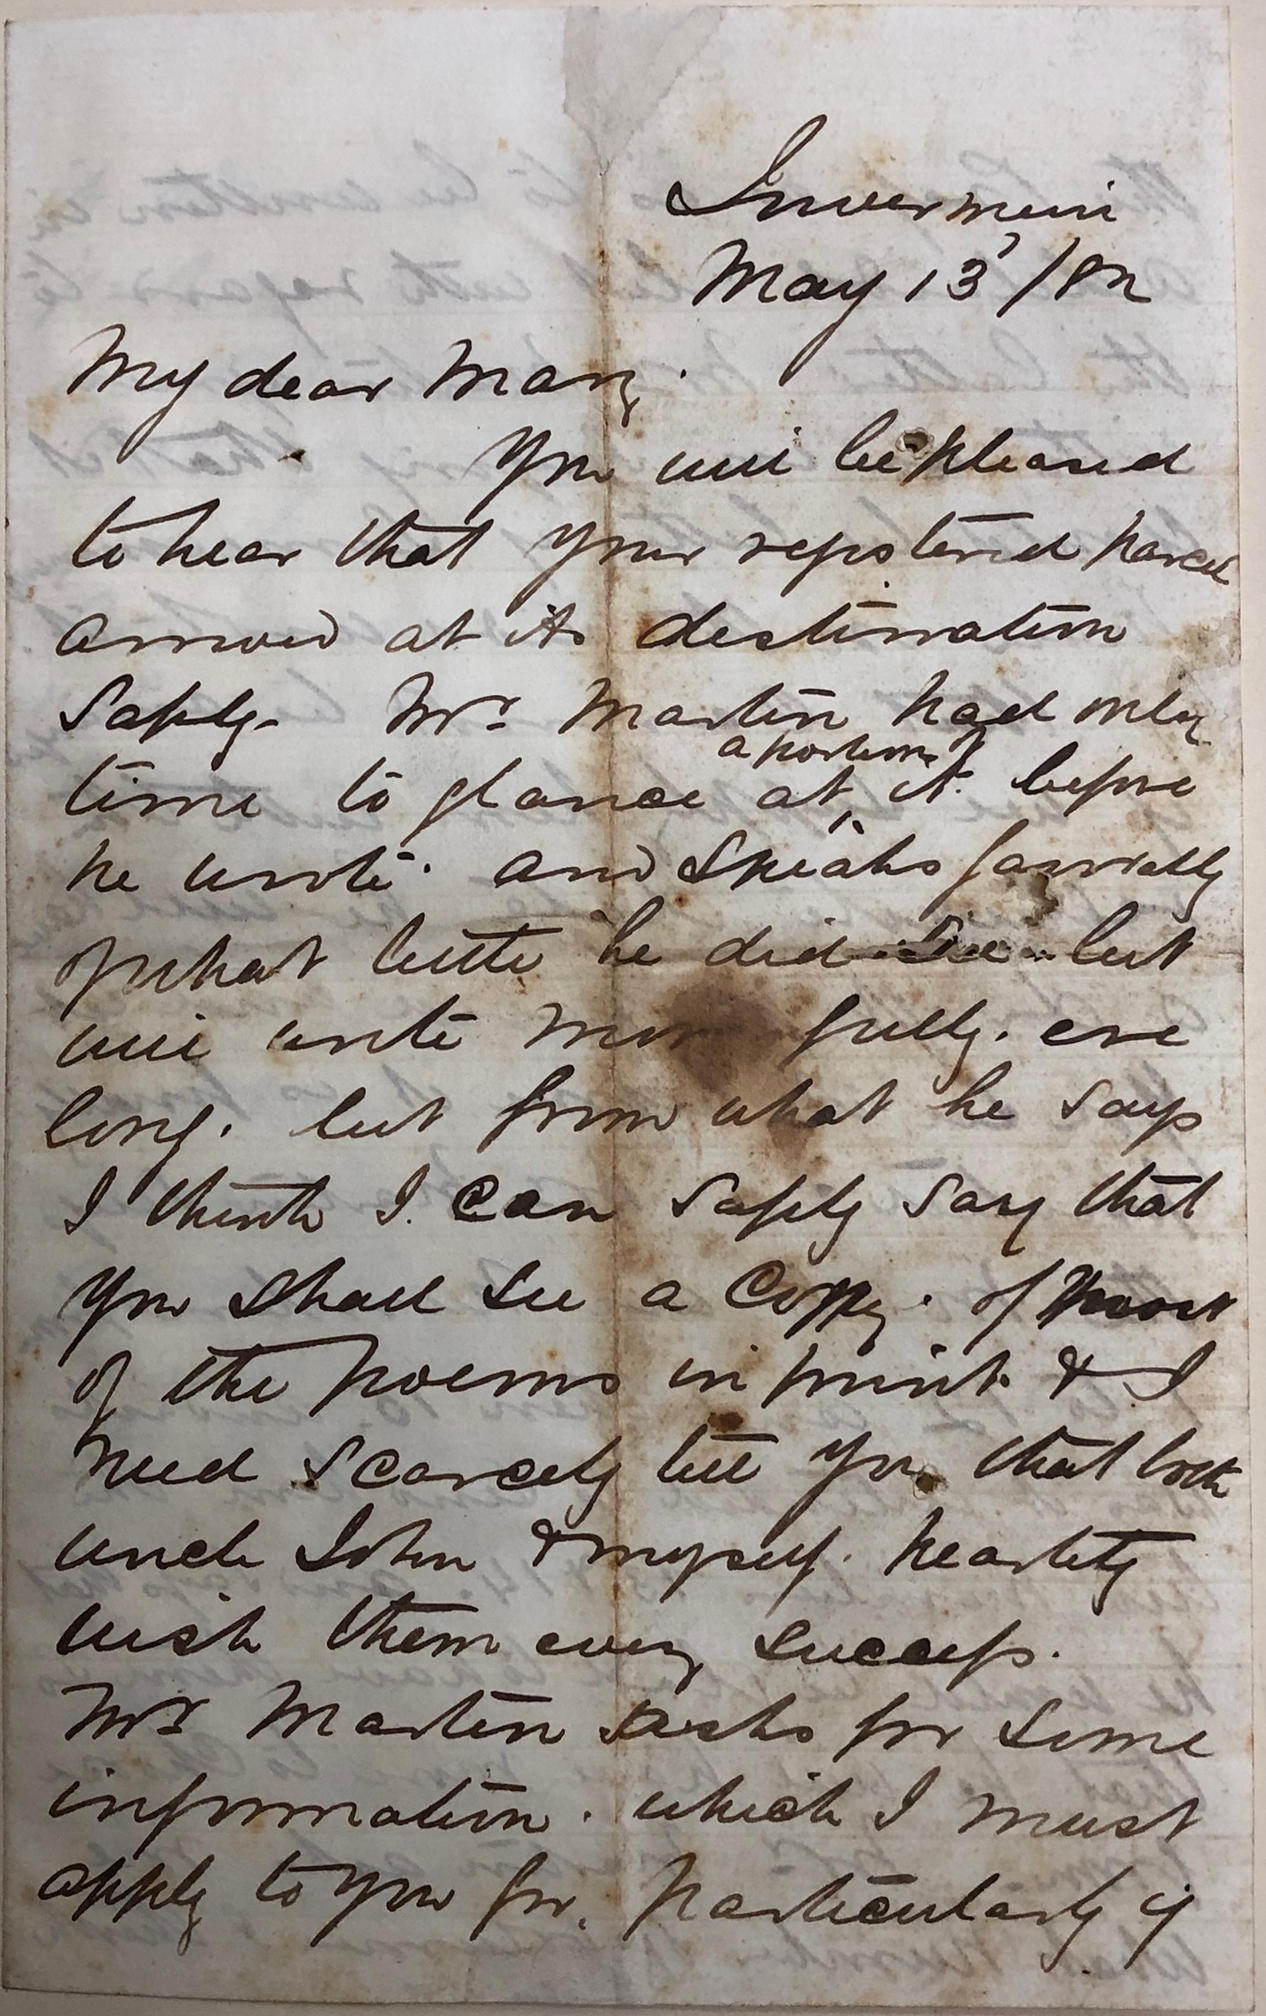 Invermein
May 13 /82
My dear Mary.
You will be pleased
to hear that your registered parcel
arrived at its destination
safely. Mr. Martin had only
a portion of
time to glance at it before
he wrote. and speaks favorably
of what little he did see but
will write more fully. ere
long. but from what he says
I think I can safely say that
you shall see a copy. of most
of the poems in print & I
need scarcely tell you that both
uncle John & myself. heartily
wish them every success.
Mr Martin asks for some
information. which I must
apply to you for. particularly if